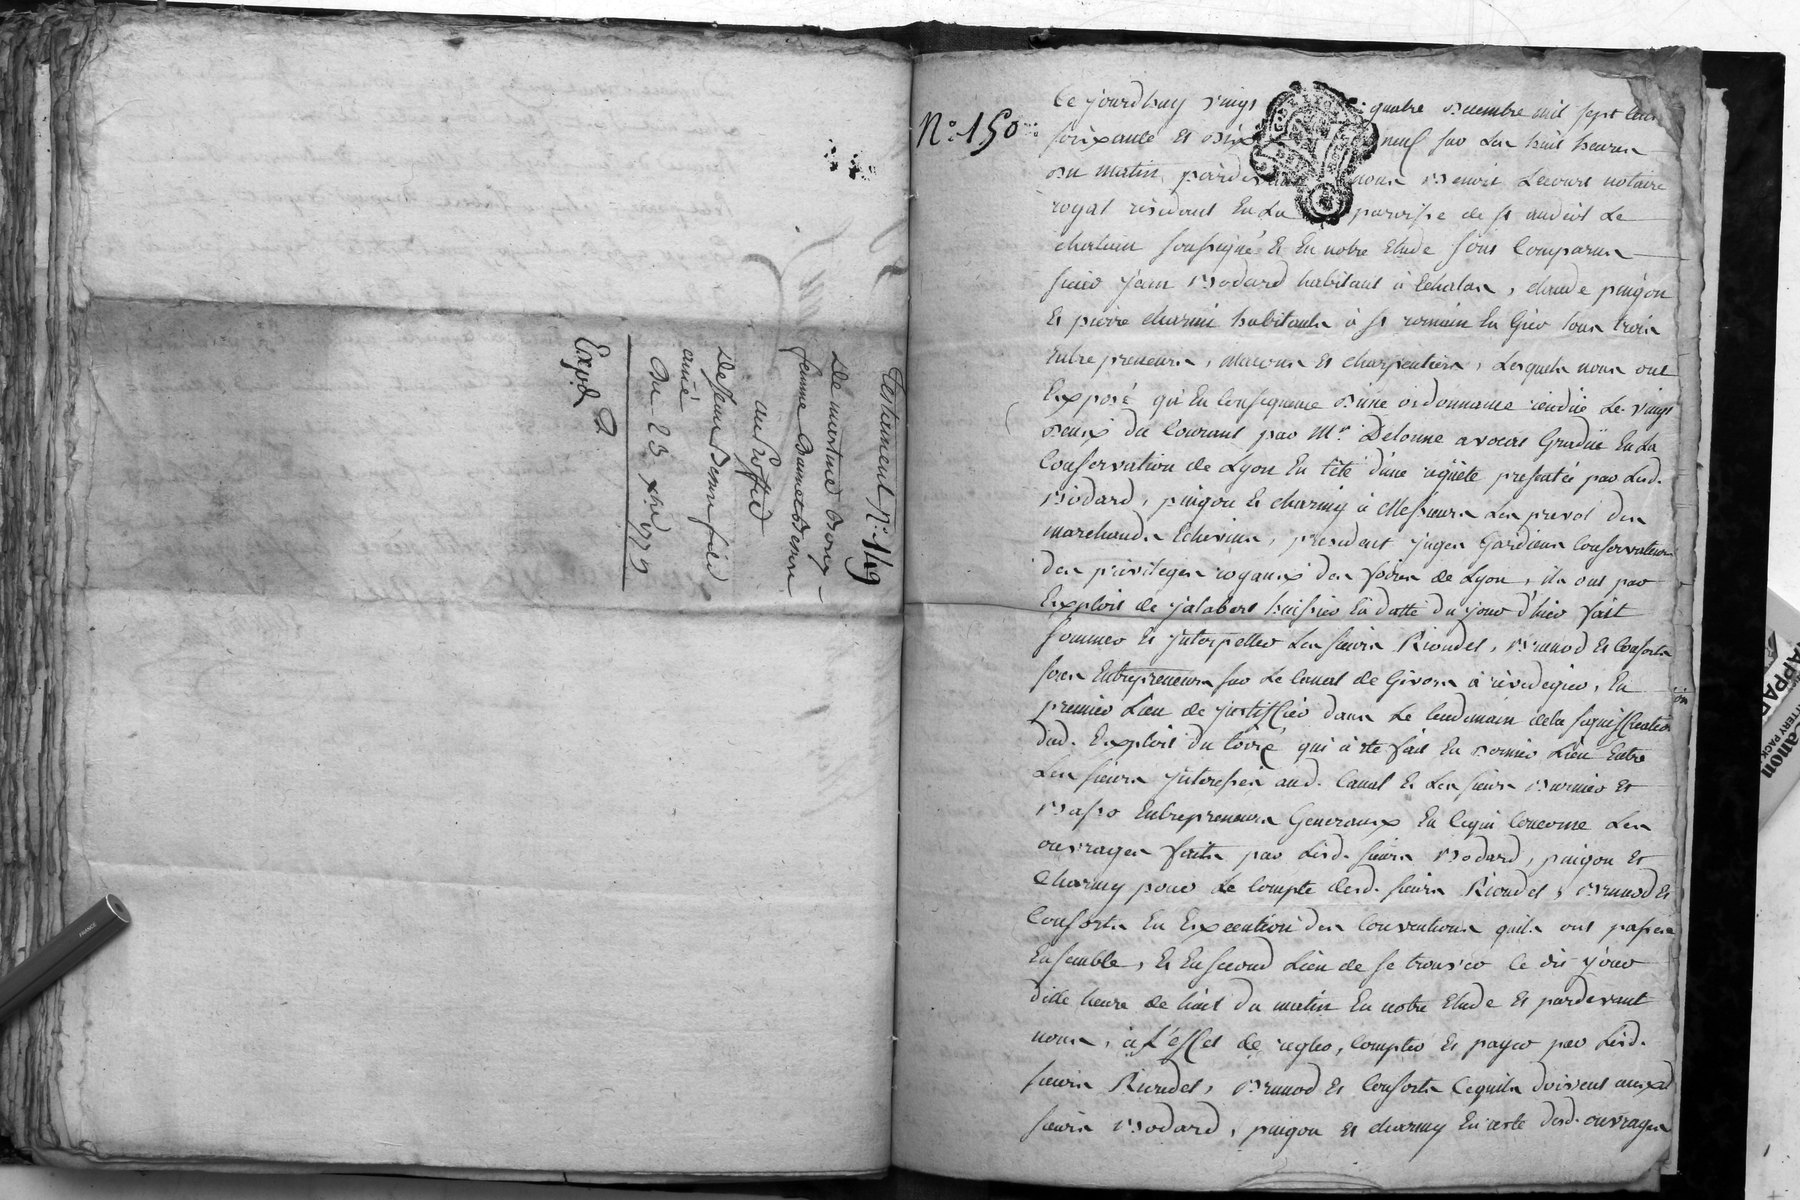 Testament N.° 149
De
femme
au Proffid
De
ainé
Du 23 xbre 1779
Expd.
N.° 150
Ce jourdhuy vingt quatre decembre mil sept cent
soixante et dix neuf sur les huit heures
du matin, pardevant nous Benoit Lecourt notaire
royal résident En La paroisse de st andéol Le
chateau soussigné Et En notre Etude sont Comparus
sieur jean Bodard habitant à Echalas, claude pingon
Et pierre charmi habitants à st romain En Gier tous trois
Entrepreneurs, macons Et charpentiers, Lesquels nous ont
Exposé qu'En Consequence d'une ordonnance rendue Le vingt
deux du Courant par Mr. Delorme avocat Gradué En La
Conservation de Lyon En tête d'une reqûete presentée par Lesd.
Bodard, pingon Et charmy à Messieurs Les prevot des
marchands Echevins, president juges Gardiens Conservateurs
des privileges royaux des foires de Lyon, ils ont par
Exploit de jalabert huissier En datte du jour d'hier fait
sommer Et jnterpeller Les sieurs Riondel, Brunod Et Consorts
Entrepreneurs sur Le Canal de Givors à rivedegier, En
premier Lieu de justiffier dans Le lendemain de la signiffication
dud. Exploit du toisé qui a été fait En dernier Lieu Entre
Les sieurs jnteressés aud. Canal Et Les sieurs Burnier Et
Entrepreneurs Generaux En Cequi Concerne Les
ouvrages faits par Lesd. sieurs Bodard, pingon Et
Charmy pour Le Compte desd. sieurs Riondel, Brunod Et
Consorts En Execution des Conventions quils ont passé
Ensemble, Et En second Lieu de se trouver Ce dit jour
dite heure de huit du matin En notre Etude Et pardevant
nous, à L'effet de regler, Compter Et payer par Lesd.
sieurs Riondel, Brunod Et Consorts Cequils doivent auxd.
sieurs Bodard, pingon Et charmy En reste desd. ouvrages
FRANCE
BATTERY PACK